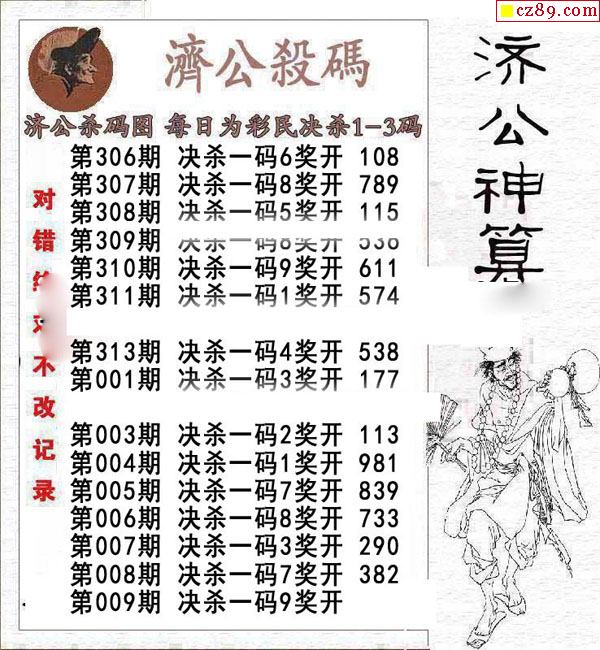 cz89.com
濟公殺碼
济公杀码图 每日为彩民决杀1-3码
第306期 决杀一码6奖开 108
第307期 决杀一码8奖开 789
第308期 决杀一码5奖开 115
第309期 决杀一码8奖开 536
第310期 决杀一码9奖开 611
第311期 决杀一码1奖开 574
第313期 决杀一码4奖开 538
第001期 决杀一码3奖开 177
第003期 决杀一码2奖开 113
第004期 决杀一码1奖开 981
第005期 决杀一码7奖开 839
第006期 决杀一码8奖开 733
第007期 决杀一码3奖开 290
第008期 决杀一码7奖开 382
第009期 决杀一码9奖开
对错 不改记录
济公神算